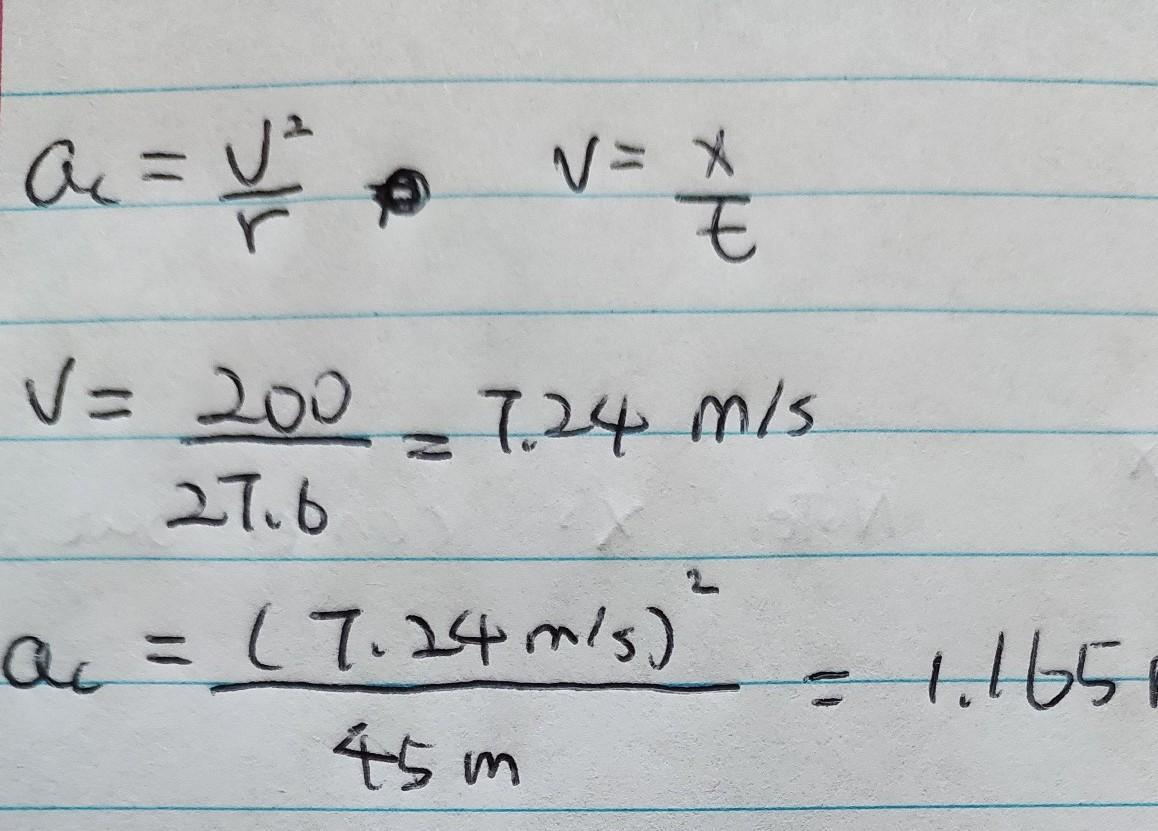 a_c = v²/r  v = x/t
v = 200/27.6 = 7.24 m/s
a_c = (7.24 m/s)²/45 m = 1.165